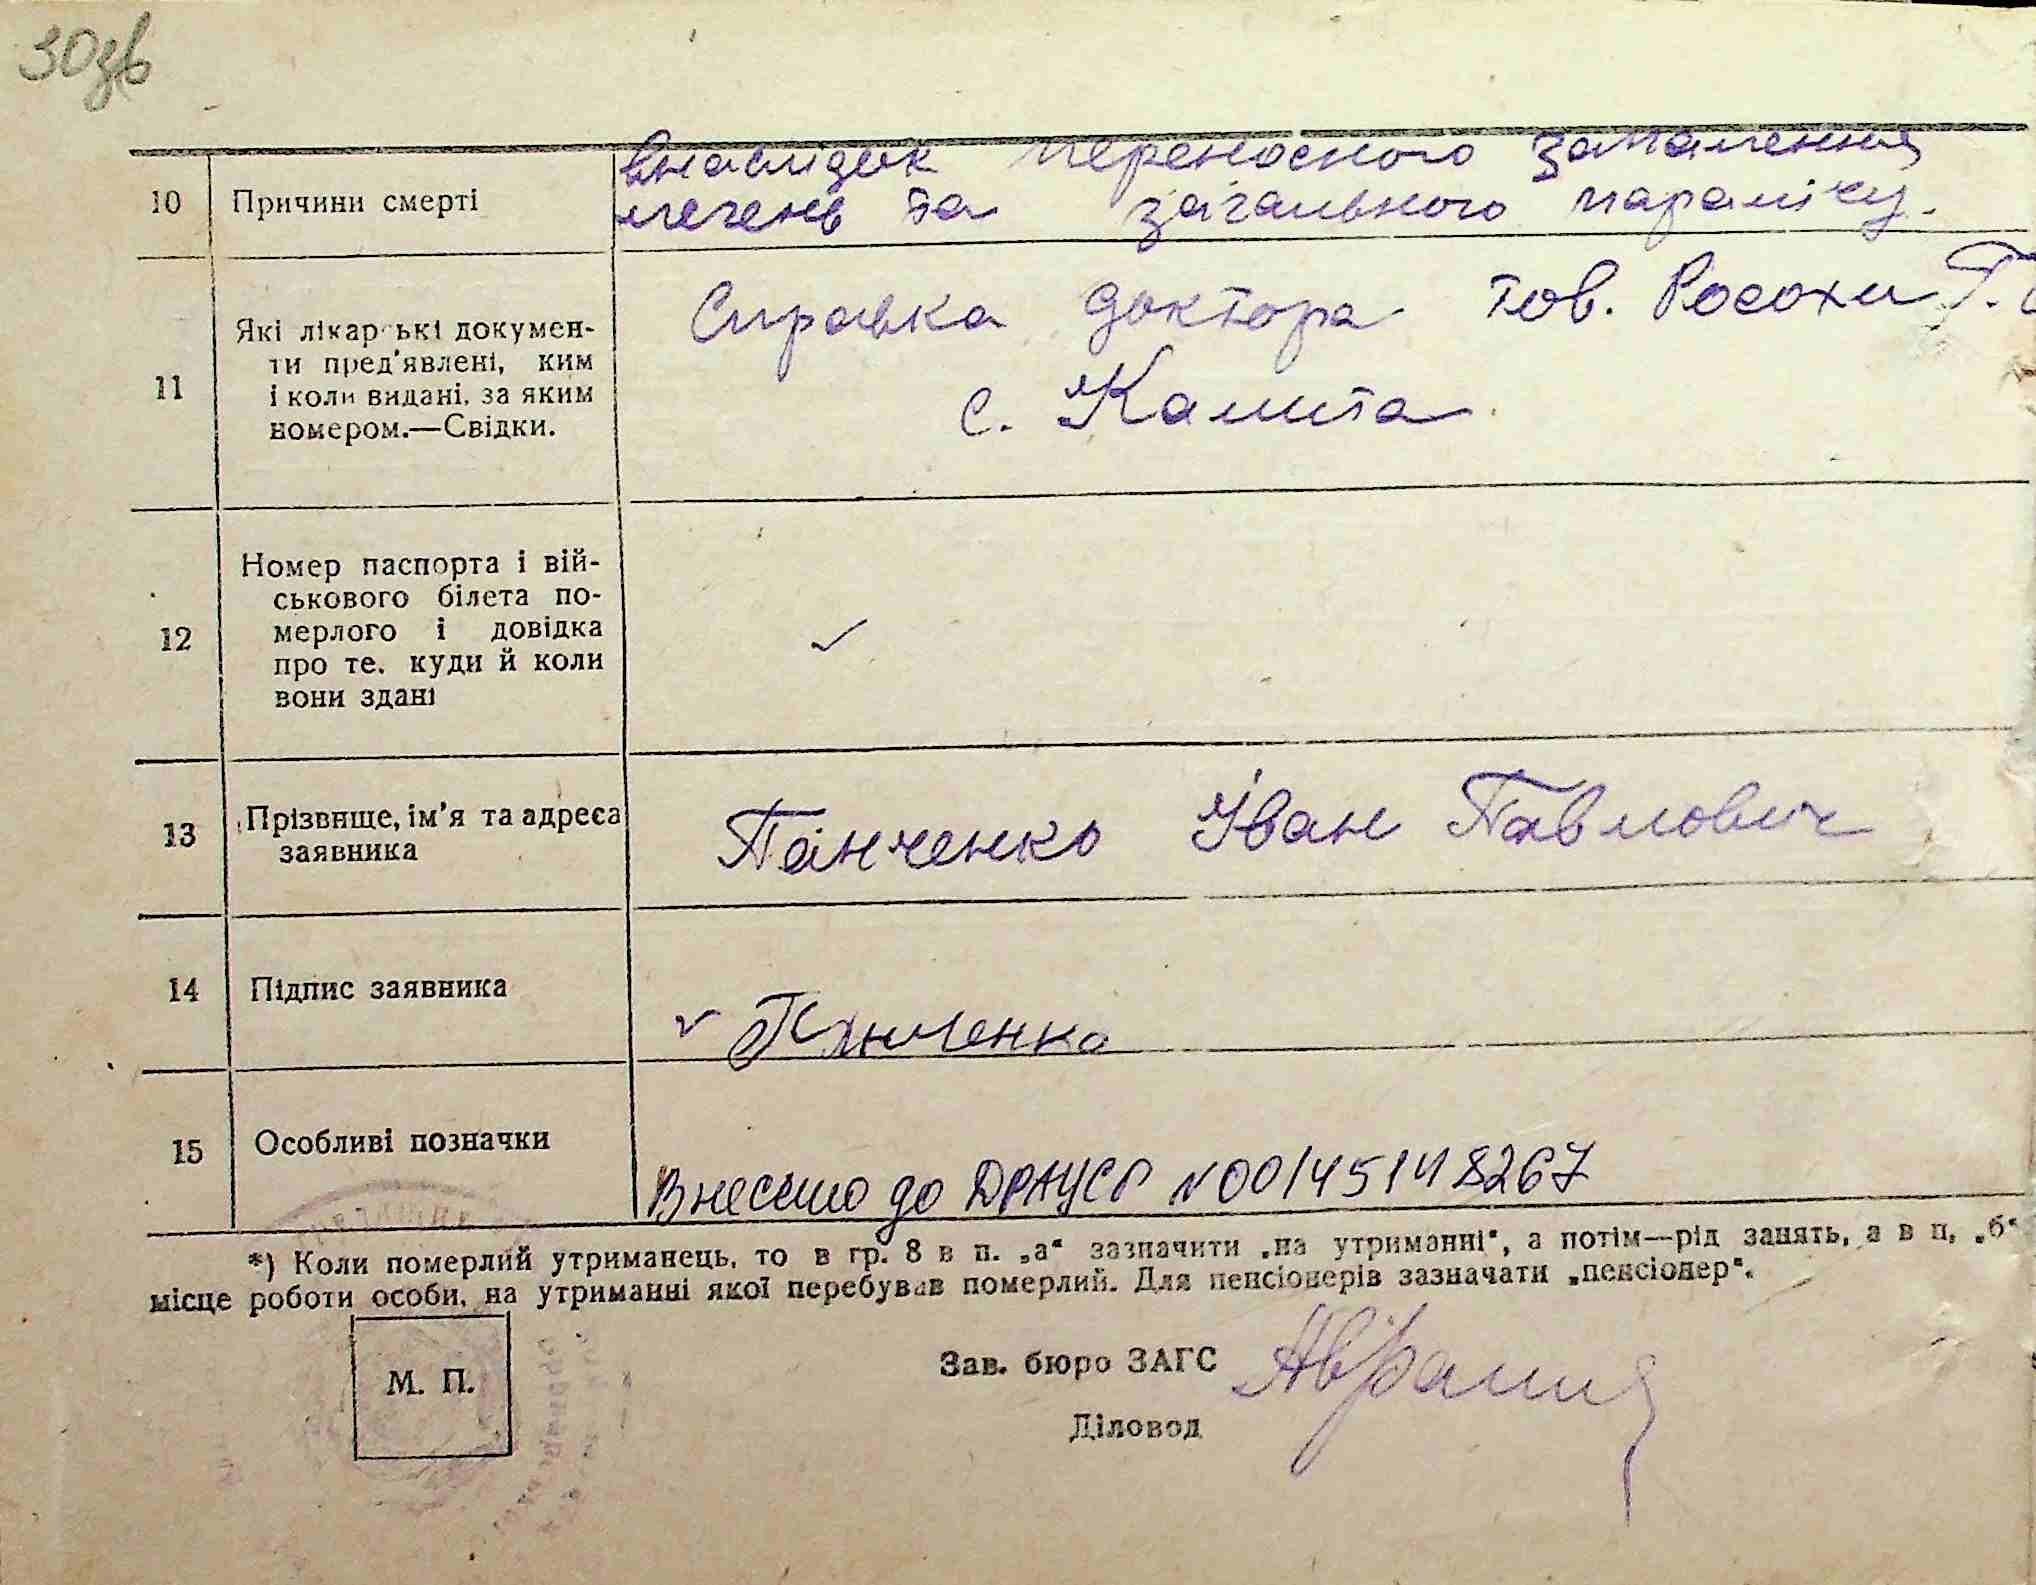 30зв
10 Причини смерті
внаслідок переносного запалення
легень та загального параліку.
11 Які лікарські докумен-
ти пред'явлені, ким
і коли видані, за яким
номером.—Свідки.
Справка доктора тов. Росохи Г.
с. Камита
12 Номер паспорта і вій-
ськового білета по-
мерлого і довідка
про те, куди й коли
вони здані
13 Прізвище, ім'я та адреса
заявника
Панченко Іван Павлович
14 Підпис заявника
Панченко
15 Особливі позначки
Внесено до ДРАЦСГ №00145148267
*) Коли померлий утриманець, то в гр. 8 в п. „а“ зазначити „на утриманні“, а потім—рід занять, а в п. „б“
місце роботи особи, на утриманні якої перебував померлий. Для пенсіонерів зазначати „пенсіонер“.
М. П.
Зав. бюро ЗАГС
Діловод